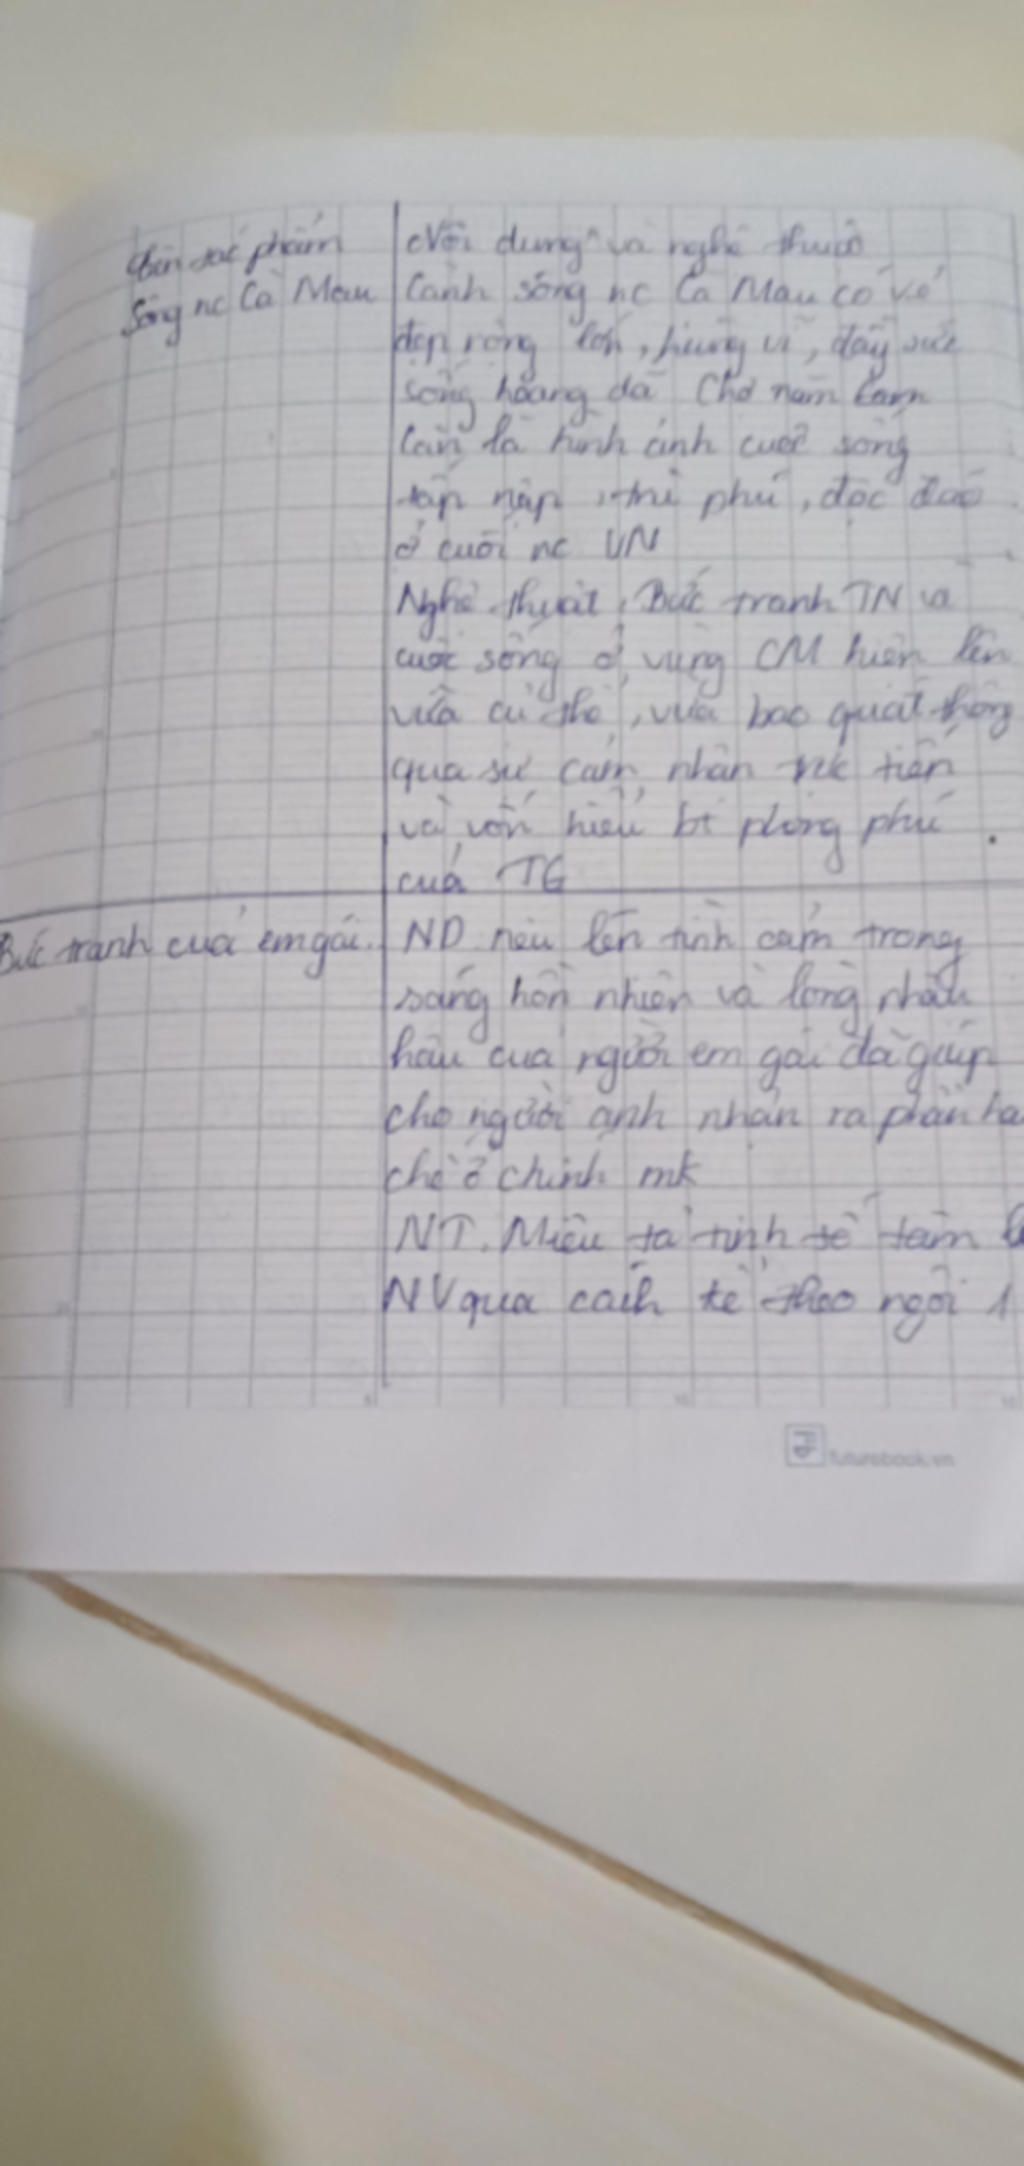 Tên tác phẩm
Sông nc Cà Mau
Nội dung và nghệ thuật
Cảnh sông nc Cà Mau có vẻ
đẹp rộng lớn, hùng vĩ, đầy sức
sống hoang dã Chợ năm
Căn là hình ảnh cuộc sống
tấp nập, trù phú, độc đáo
ở cuối nc VN
Nghệ thuật, Bức tranh TN và
cuộc sống ở vùng CM hiện lên
vừa cụ thể, vừa bao quát thông
qua sự cảm nhận trực tiếp
và vốn hiểu bt phong phú
của TG
Bức tranh của em gái.
ND nêu lên tình cảm trong
sáng hồn nhiên và lòng nhân
hậu của người em gái đã giúp
cho người anh nhận ra phần hạ
chế ở chính mk
NT. Miêu tả tinh tế tâm
NV qua cách kể theo ngôi 1
futurebook.vn